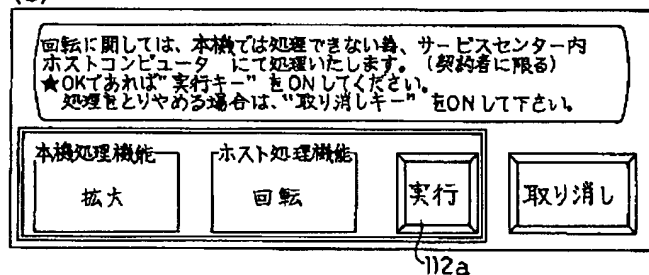 回転に関しては、本機では処理できない為、サービスセンター内
ホストコンピュータ にて処理いたします。(契約者に限る)
★OKであれば"実行キー" をONしてください。
処理をとりやめる場合は、"取り消しキー" をONして下さい。
本機処理機能 ホスト処理機能
拡大 回転 実行 取り消し
112a